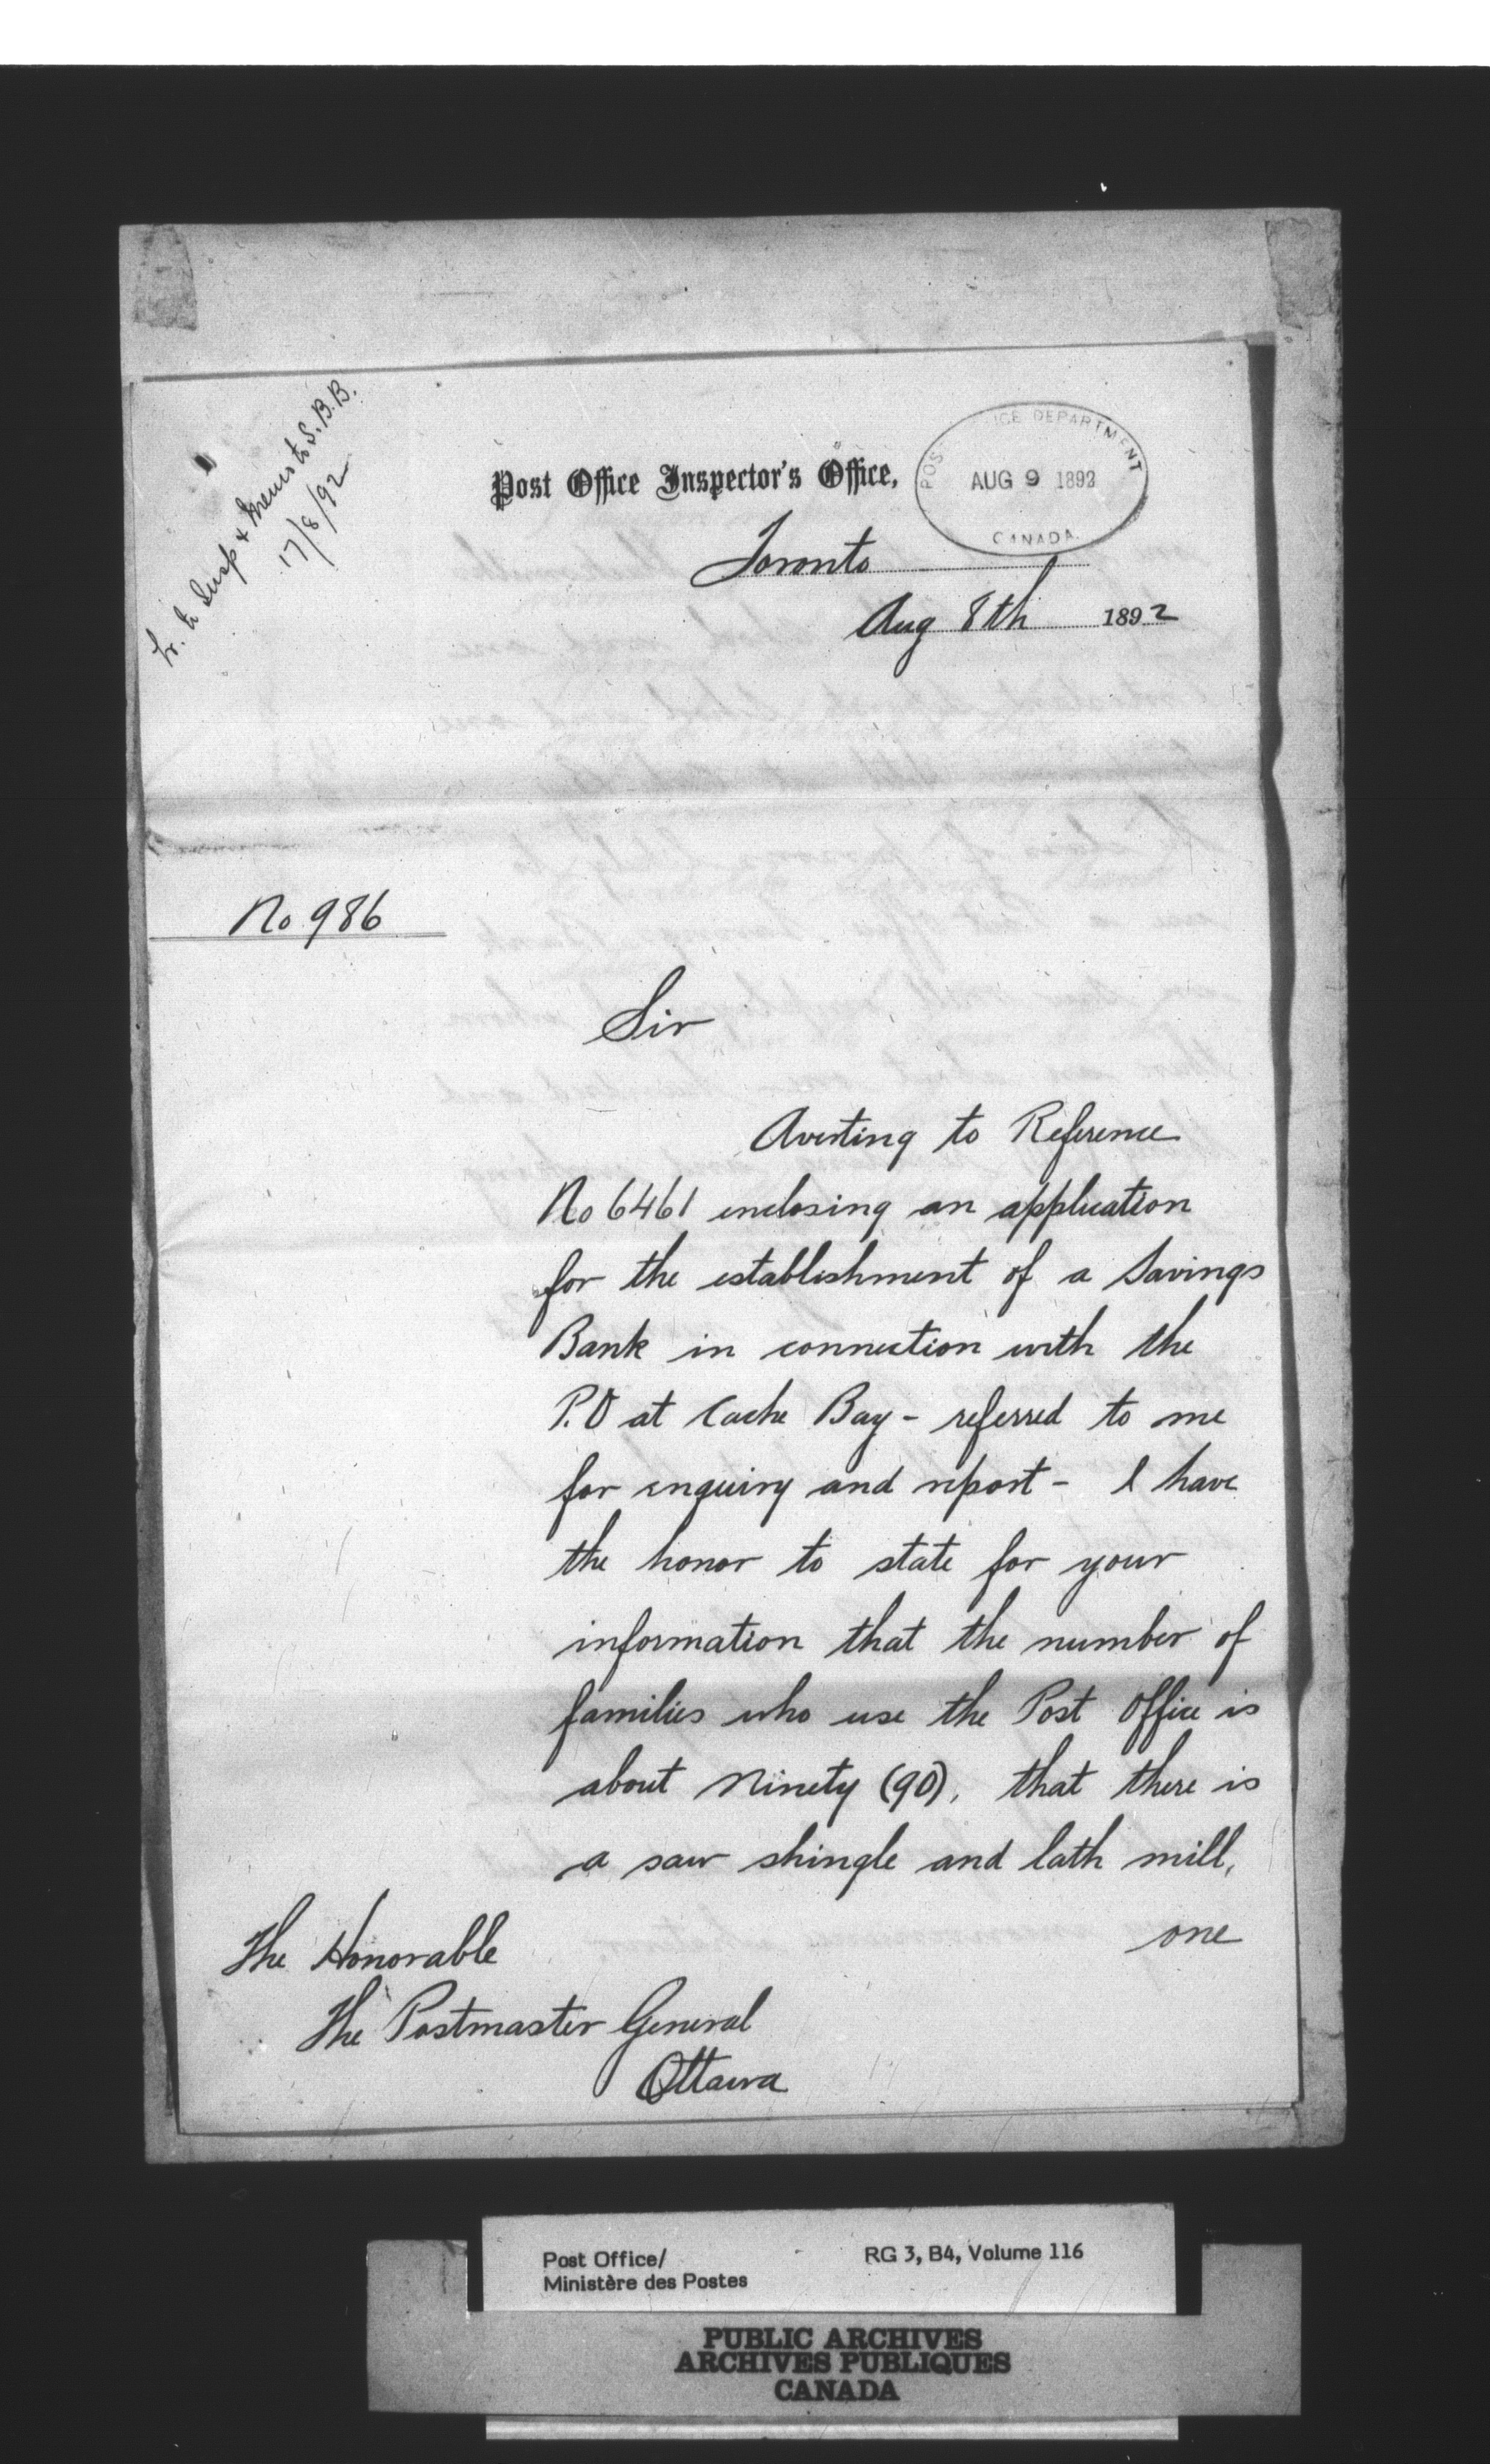 Lr. to Insp & Memo to S.B.B.
17/8/92
Post Office Inspector's Office,
POS ICE DEPARTMENT
AUG 9 1892
CANADA
Toronto
Aug 8th 1892
No 986
Sir
Averting to Reference
No 6461 enclosing an application
for the establishment of a Savings
Bank in connection with the
P.O at Cache Bay - referred to me
for enquiry and report - I have
the honor to state for your
information that the number of
families who use the Post Office is
about Ninety (90), that there is
a saw shingle and lath mill,
one
The Honorable
The Postmaster General
Ottawa
Post Office/
Ministère des Postes
RG 3, B4, Volume 116
PUBLIC ARCHIVES
ARCHIVES PUBLIQUES
CANADA